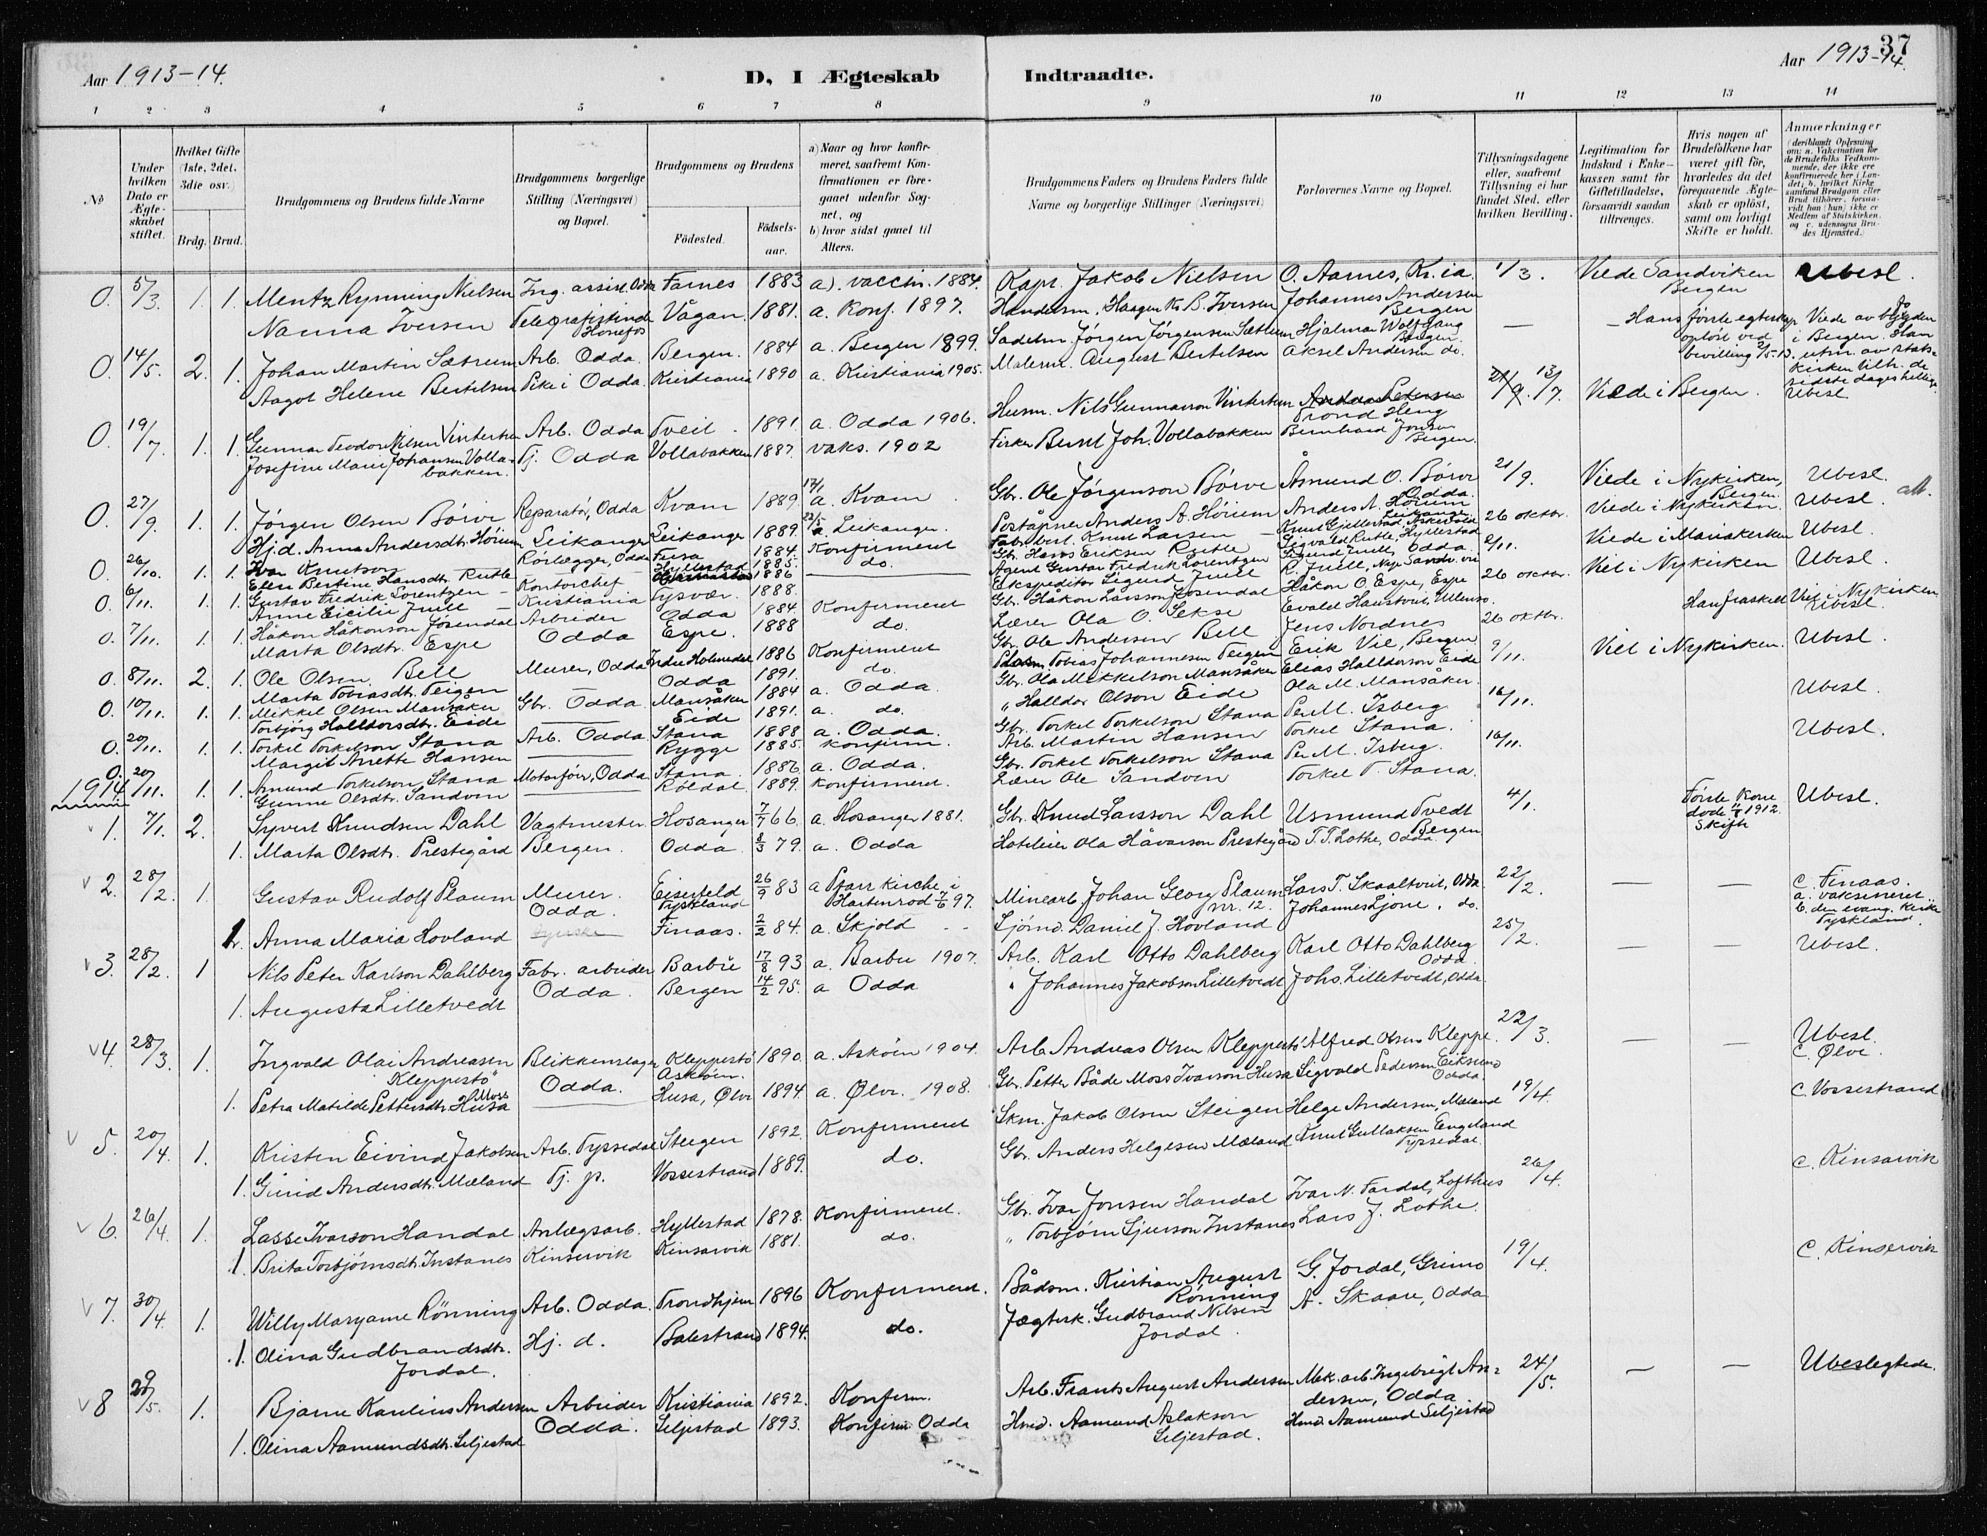 37
Aar 1913-14.
D, I Ægteskab Indtraadte.
Aar 1913-14.
1 2 3 4 5 6 7 8 9 10 11 12 13 14
No
Under hvilken Dato er Ægteskabet stiftet.
Hvilket Gifte (1ste, 2det, 3die osv.)
Brdg. Brud.
Brudgommens og Brudens fulde Navne
Brudgommens borgerlige Stilling (Næringsvei) og Bopæl.
Brudgommens og Brudens
Fødested. Fødselsaar.
a) Naar og hvor konfirmeret, saafremt Konfirmationen er foregaaet udenfor Sognet, og b) hvor sidst gaaet til Alters.
Brudgommens Faders og Brudens Faders fulde Navne og borgerlige Stillinger (Næringsvei)
Forlovernes Navne og Bopæl.
Tillysningsdagene eller, saafremt Tillysning ei har fundet Sted, efter hvilken Bevilling.
Legitimation for Indskud i Enkekassen samt for Giftetilladelse, forsaavidt saadan tiltrænges.
Hvis nogen af Brudefolkene har været gift før, hvorledes da det foregaaende Ægteskab er opløst, samt om lovligt Skifte er holdt.
Anmærkninger (deriblandt Oplysning om: a. Vakcination for de Brudefolks Vedkommende, der ikke ere konfirmerede her i Landet; b. hvilket Kirkesamfund Brudgom eller Brud tilhører, forsaavidt han (hun) ikke er Medlem af Statskirken, og c. udensogns Brudes Hjemsted.)
0. 5/3 1. 1. Mentz Rynning Nielsen Ing. assist. Odda Farnes 1883 a). vaccin. 1884. Kapt. Jakob Nielsen O. Aarnes, Kr.ia 1/3. Viede Sandviken Bergen Ubesl.
Nanna Iversen Telegrafistinde Hönefos Vågan. 1881. a. Konf. 1897. Handelsm. Haagen Kr. B. Iversen Johannes Andersen Bergen
0. 14/5 2. 1. Johan Martin Sætrum Arb. Odda. Bergen. 1884 a. Bergen 1899. Sadelm. Jørgen Jørgensen Sætrum Hjalmar Wolfgang Bergen — — Hans første egteskap opløst ved bevilling 2/5-13. Viede av byfogden i Bergen. Han utm. av statskirken tilh. de sidste dages hellige Ubesl.
Aagot Helene Bertelsen Pike i Odda. Kristiania 1890 a. Kristiania 1905. Malerm. August Bertelsen Aksel Andersen do.
0 19/7 1. 1. Gunnar Teodor Nilsen Vintertun Arb. Odda Tveit. 1891 a. Odda 1906. Husm. Nils Gunnarson Vintertun Trond Heng 13/7 Viede i Bergen.
Josefine Marie Johansen Vollabakken. Tj. Odda Vollabakken 1887. vaks. 1902 Fisker Bernt Joh. Vollabakken Bernhard Jonsen Bergen.
0. 27/9 1. 1. Jørgen Olsen Börve Reparatör, Odda Kvam 1889 a. Kvam Gbr. Ole Jørgenson Börve Åsmund O. Börve Odda. 21/9. Viede i Nykirken, Bergen. Ubesl.
Hj.d. Anna Andersdtr. Höium Leikanger Leikanger 1889. a. Leikanger. Poståpner Anders A. Höium Anders A. Höium Leikanger
0. 26/10 1. 1. Ivar Knutson Rörlægger, Odda 1884. Konfirmeret Knut Larsen 26 oktbr. Viede i Nykirken. Ubesl.
Elen Bertine Hansdtr. Rutle Hyllestad 1885. do. Gbr. Hans Eriksen Rutle Sigvald Rutle, Hyllestad
0. 6/11. 1. 1. Gustav Fredrik Lorentzen Kontorchef 1886 Agent Gustav Fredrik Lorentzen Sigurd Juell, Odda. 2/11. Viede i Mariakirken Ubesl.
Anne Cicilie Juell Kristiania Tysvær. 1888. Ekspeditør Sigurd Juell
0. 7/11. 1. 1. Håkon Håkonson Jösendal Arbeider Odda 1884. Konfirmeret Gbr. Håkon Larsson Jösendal Håkon O. Espe, Espe 26 oktbr. Viet i Nykirken Ubesl.
Marta Olsdtr. Espe Odda Espe. 1888 do. Lærer Ola O. Sekse
0. 8/11. 2. 1. Ole Olsen Bell Murer, Odda Indre Holmedal 1886 Konfirmeret Gbr. Ole Andersen Bell Jens Nordnes 26 oktbr. Han fraskilt Viet i Nykirken Ubesl.
Marta Tobiasdtr. Teigen Odda 1891. do. Tobias Johannesen Teigen Erik Vie, Bergen
0. 10/11. 1. 1. Mikkel Olsen Mansåker Gbr. Odda Mansåker 1884 a. Odda. Gbr. Ola Mikkelson Mansåker Elias Halldorson Eide 9/11. Viet i Nykirken. Ubesl.
Torbjörg Halldorsdtr. Eide Eide 1891. a. do. „ Halldor Olson Eide Ola M. Mansåker.
0. 20/11. 1. 1. Torkel Torkelson Stana Arb. Odda Stana 1888 a. Odda. Gbr. Torkel Torkelson Stana Per M. Isberg 16/11. Ubesl.
Margit Anette Hansen Rygge 1885. konfirm. Arb. Martin Hansen Torkel Stana.
0. 20/11. 1. 1. Amund Torkelson Stana Motorförer, Odda Stana. 1886 a. Odda. Gbr. Torkel Torkelson Stana Per M. Isberg. 16/11. Ubesl.
Gunne Olsdtr. Sandven Röldal. 1889. konfirmeret. Lærer Ole Sandven Torkel T. Stana.
1914
1. 7/1. 2. Syvert Knudsen Dahl Vagtmester Hosanger 7/7 66. a. Hosanger 1881. Gbr. Knud Larsson Dahl Usmund Tvedt Bergen 4/1. Første Kone døde 1912. Skifte Ubesl.
1. Marta Olsdtr. Prestegård Bergen. Odda 8/3 79. a. Odda Hoteleier Ola Håvarson Prestegård T. T. Lothe, Odda.
2. 28/2. 1. Gustav Rudolf Plaum Murer Odda. Eiserfeld Tyskland 26/9 83 a Pfarrkirche i Hartenrod 7/6 97. Minearb. Johan Georg Plaum nr. 12. Lars T. Skaaltveit, Odda 22/2. — — C. Finaas. a. vaksineret. b. den evang. Kirke Tyskland.
1. Anna Maria Hovland Finaas. 2/2 84. a. Skjold Sjömd. Daniel J. Hovland Johannes Ljone, do.
3. 28/2. 1 Nils Peter Karlson Dahlberg Fabr. arbeider Barbu 17/8 93 a. Barbu 1907. Arb. Karl Otto Dahlberg Karl Otto Dahlberg Odda. 25/2. — — Ubesl.
1. Augusta Lilletvedt Odda. Bergen 14/2 95. a Odda „ Johannes Jakobson Lilletvedt Johs. Lilletvedt, Odda.
4. 28/3. 1. Ingvald Olai Andreasen Kleppestö Blikkenslager Kleppestö Asköen. 1890. a. Asköen 1904. Arb. Andreas Olsen Kleppestö Alfred Olsen Kleppe. 22/3. — — Ubesl. C. Ølve.
1. Petra Matilde Pettersdtr. Moss Husa Odda. Husa, Ølve 1894. a. Ølve. 1908. Gbr. Petter Både Moss Ivarson Husa Sigvald Pedersen Eiksund Odda.
5. 20/4. 1. Kristen Eivind Jakobsen Arb. Tyssedal Steigen 1892. Konfirmeret Skm. Jakob Olsen Steigen Helge Andersen, Mæland 19/4. C. Vossestrand
1. Gurid Andersdtr. Mæland Tj. p. Vossestrand 1889. do. Gbr. Anders Helgesen Mæland Knut Gullaksen Engeland Tyssedal.
6. 26/4. 1. Lasse Ivarson Handal Anlægsarb. Hyllestad 1878. Konfirmeret. Gbr. Ivar Jonsen Handal Ivar N. Fardal, Lofthus 26/4. C. Kinsarvik
1. Brita Torbjørnsdtr. Instanes Kinservik Kinsarvik 1881. do. „ Torbjørn Sjurson Instanes Lars J. Lothe.
7. 30/4. 1. Willy Maryame Rönning Arb. Odda. Trondhjem 1896 Konfirmeret. Bådsm. Kristian August Rönning G. Jordal, Grimo 19/4. C. Kinservik
1. Olina Gudbrandsdtr. Jordal. Hj. d. Balestrand 1894. do. Jægtesk. Gudbrand Nilsen Jordal. A. Skaare, Odda
8 29/5. 1. Bjarne Karelius Andersen Arbeider Kristiania 1892. Konfirm. Arb. Frants August Andersen Mek. arb. Ingebrigt Andersen, Odda 24/5. — — Ubeslegtede.
1. Olina Aamundsdtr. Seljestad Odda. Seljestad 1893. Konfirm Odda Hmd. Aamund Aslakson Seljestad. Hmd. Aamund Seljestad